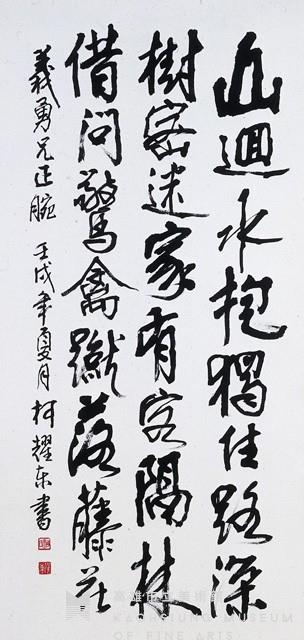 山迴水抱獨住路深
樹密迷家有客隔林
借問驚禽蹴落藤花
義勇兄正腕 壬戌年夏月 柯耀東書
高雄市立美術館
KAOHSIUNG MUSEUM
OF FINE ARTS